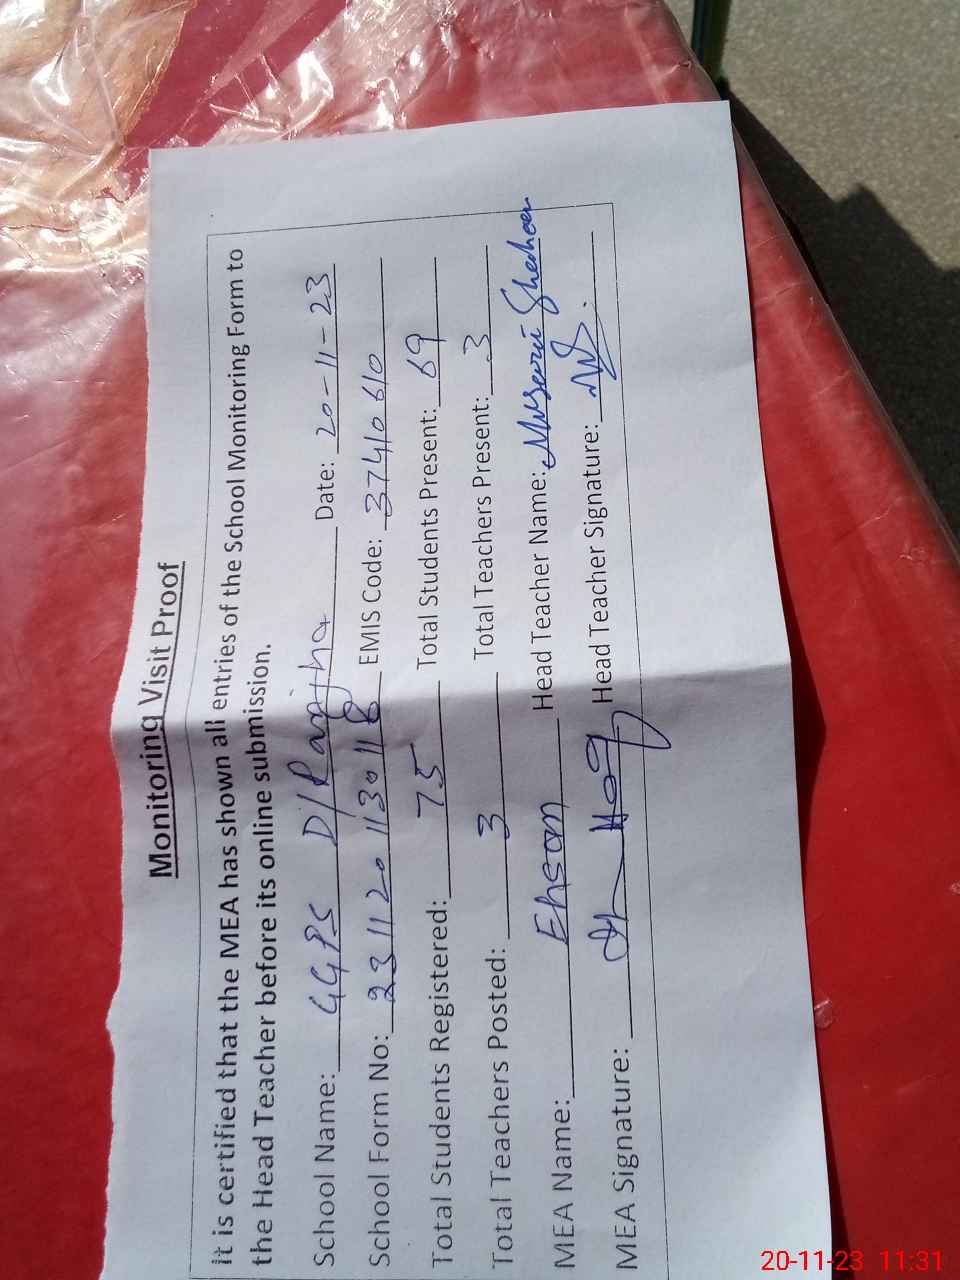 Monitoring Visit Proof
It is certified that the MEA has shown all entries of the School Monitoring Form to
the Head Teacher before its online submission.
School Name: GGPS D/Ranjha Date: 20-11-23
School Form No: 2311201130118 EMIS Code: 37410610
Total Students Registered: 75 Total Students Present: 69
Total Teachers Posted: 3 Total Teachers Present: 3
MEA Name: Ehsan Head Teacher Name:
MEA Signature: Head Teacher Signature:
20-11-23 11:31